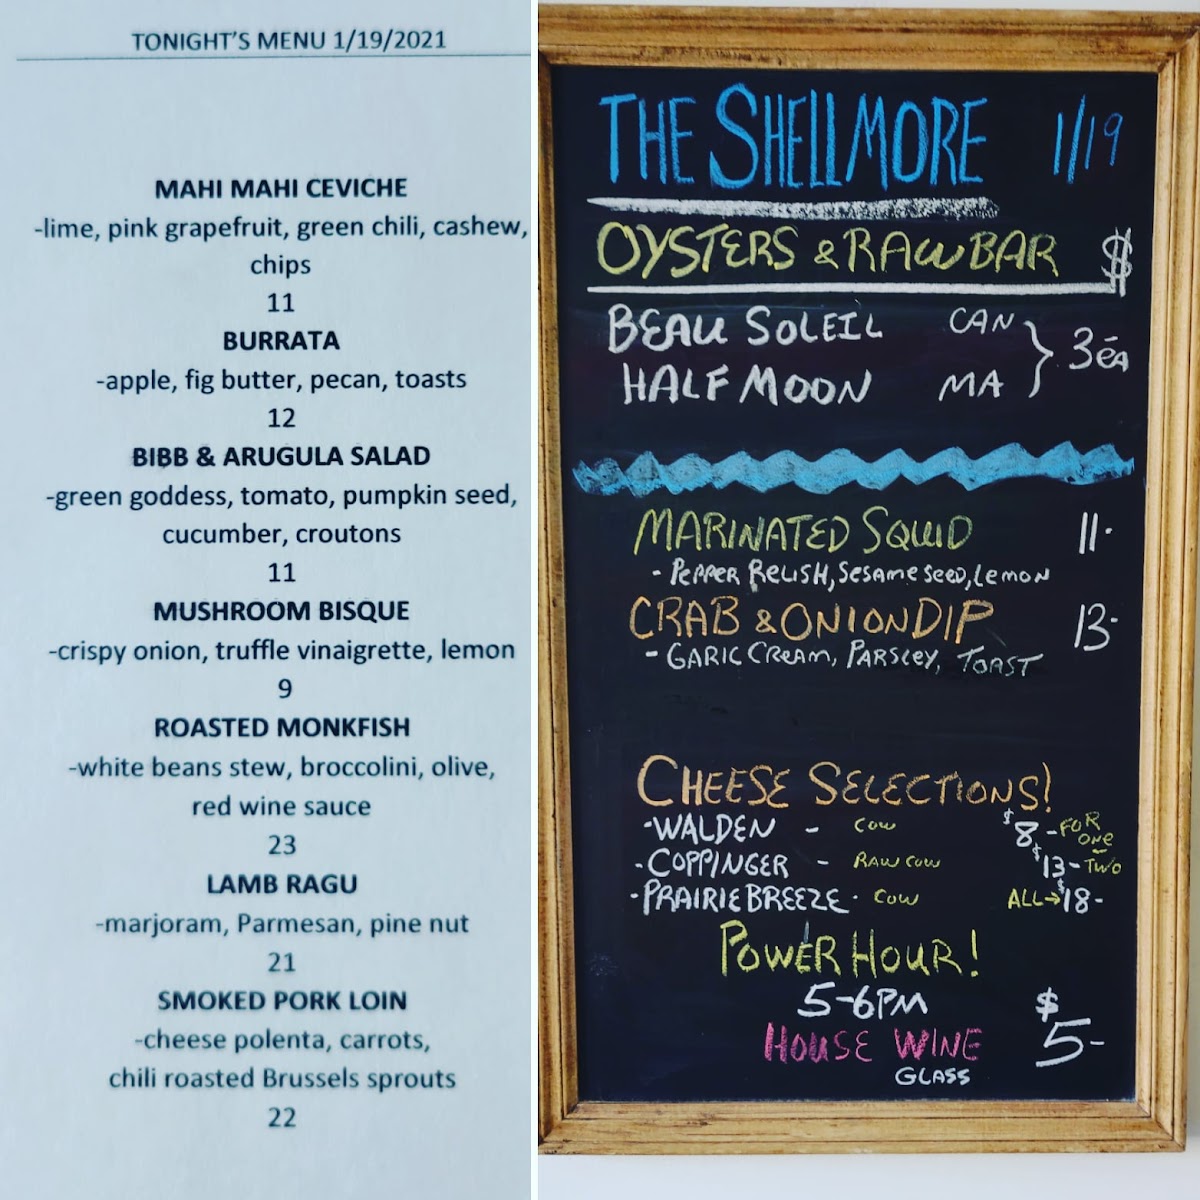 TONIGHT'S MENU 1/19/2021
MAHI MAHI CEVICHE
-lime, pink grapefruit, green chili, cashew,
chips
11
BURRATA
-apple, fig butter, pecan, toasts
12
BIBB & ARUGULA SALAD
-green goddess, tomato, pumpkin seed,
cucumber, croutons
11
MUSHROOM BISQUE
-crispy onion, truffle vinaigrette, lemon
9
ROASTED MONKFISH
-white beans stew, broccolini, olive,
red wine sauce
23
LAMB RAGU
-marjoram, Parmesan, pine nut
21
SMOKED PORK LOIN
-cheese polenta, carrots,
chili roasted Brussels sprouts
22
THE SHELLMORE 1/19
OYSTERS & RAW BAR $
BEAU SOLEIL CAN
HALF MOON MA } 3 ea
MARINATED SQUID 11-
- PEPPER RELISH, SESAME SEED, LEMON
CRAB & ONION DIP 13-
- GARIC CREAM, PARSLEY, TOAST
CHEESE SELECTIONS!
-WALDEN - COW $8-FOR ONE
-COPPINGER - RAW COW $13-TWO
-PRAIRIE BREEZE- COW ALL→$18-
POWER HOUR!
5-6PM
HOUSE WINE $5-
GLASS